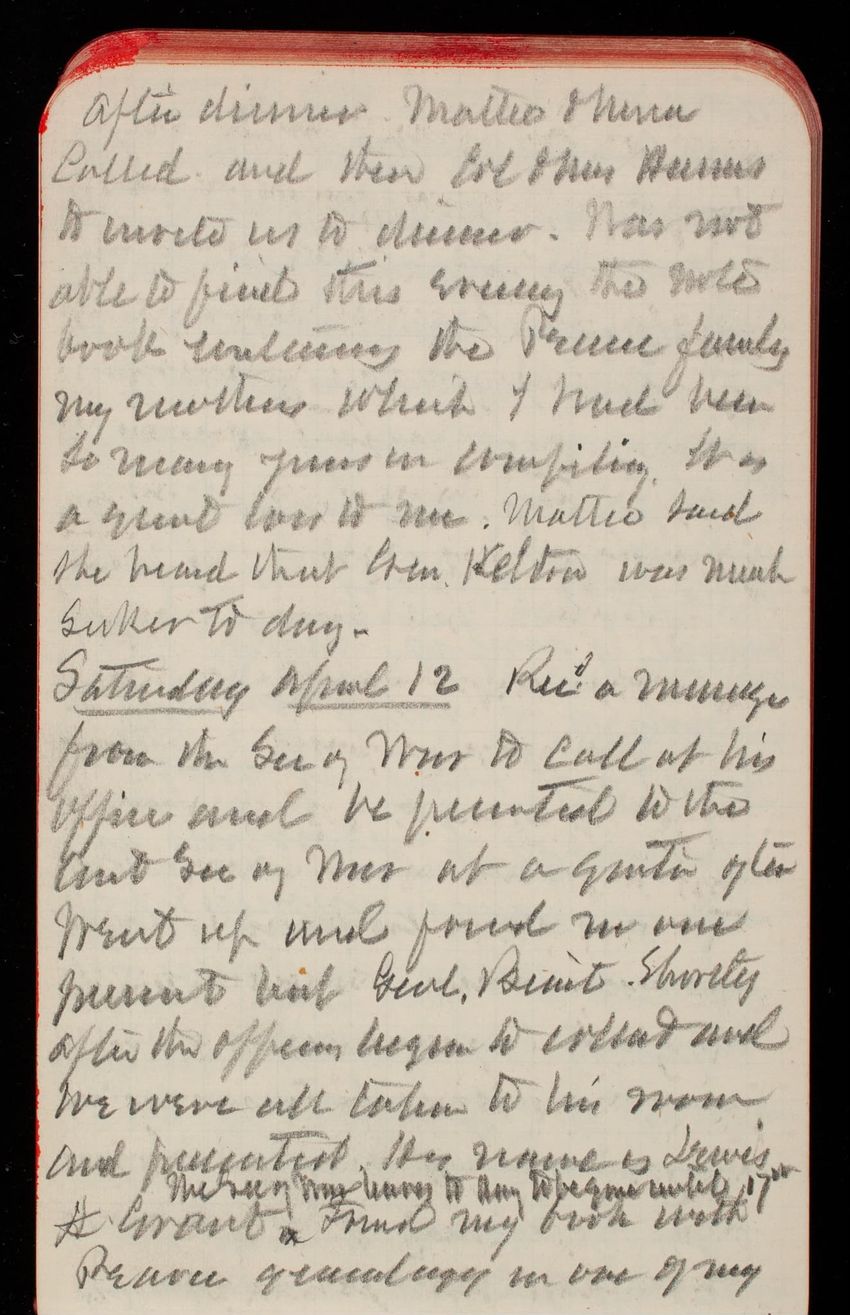 after dinner. Mattie & Anna
Called and then Col & Mrs
to invite us to dinner. Was not
able to find this evening the note
book containing the Pearce family
my mothers which I had been
so many years in compiling. It is
a great loss to me. Mattie said
she heard that Gen. Kelton was much
sicker to day.
Saturday April 12 Recd a message
from the Sec of War to call at his
office and be presented to the
asst Sec of War at a quarter after
Went up and found no one
present but Genl. Benét. Shortly
after the officers began to collect and
we were all taken to his room
and presented. His name is Lewis
The Sec of War leaves to day to be gone until 17th
A Grant. Found my book with
Pearce genealogy in one of my